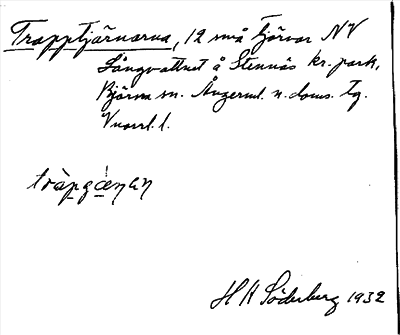 Trapptjärnarna, 12 små tjärnar NV
Långvattnet å Stennäs kr. park,
Björna sn. Ångerml. n. doms. tg.
Vnorrl. l.
H A Söderberg 1932